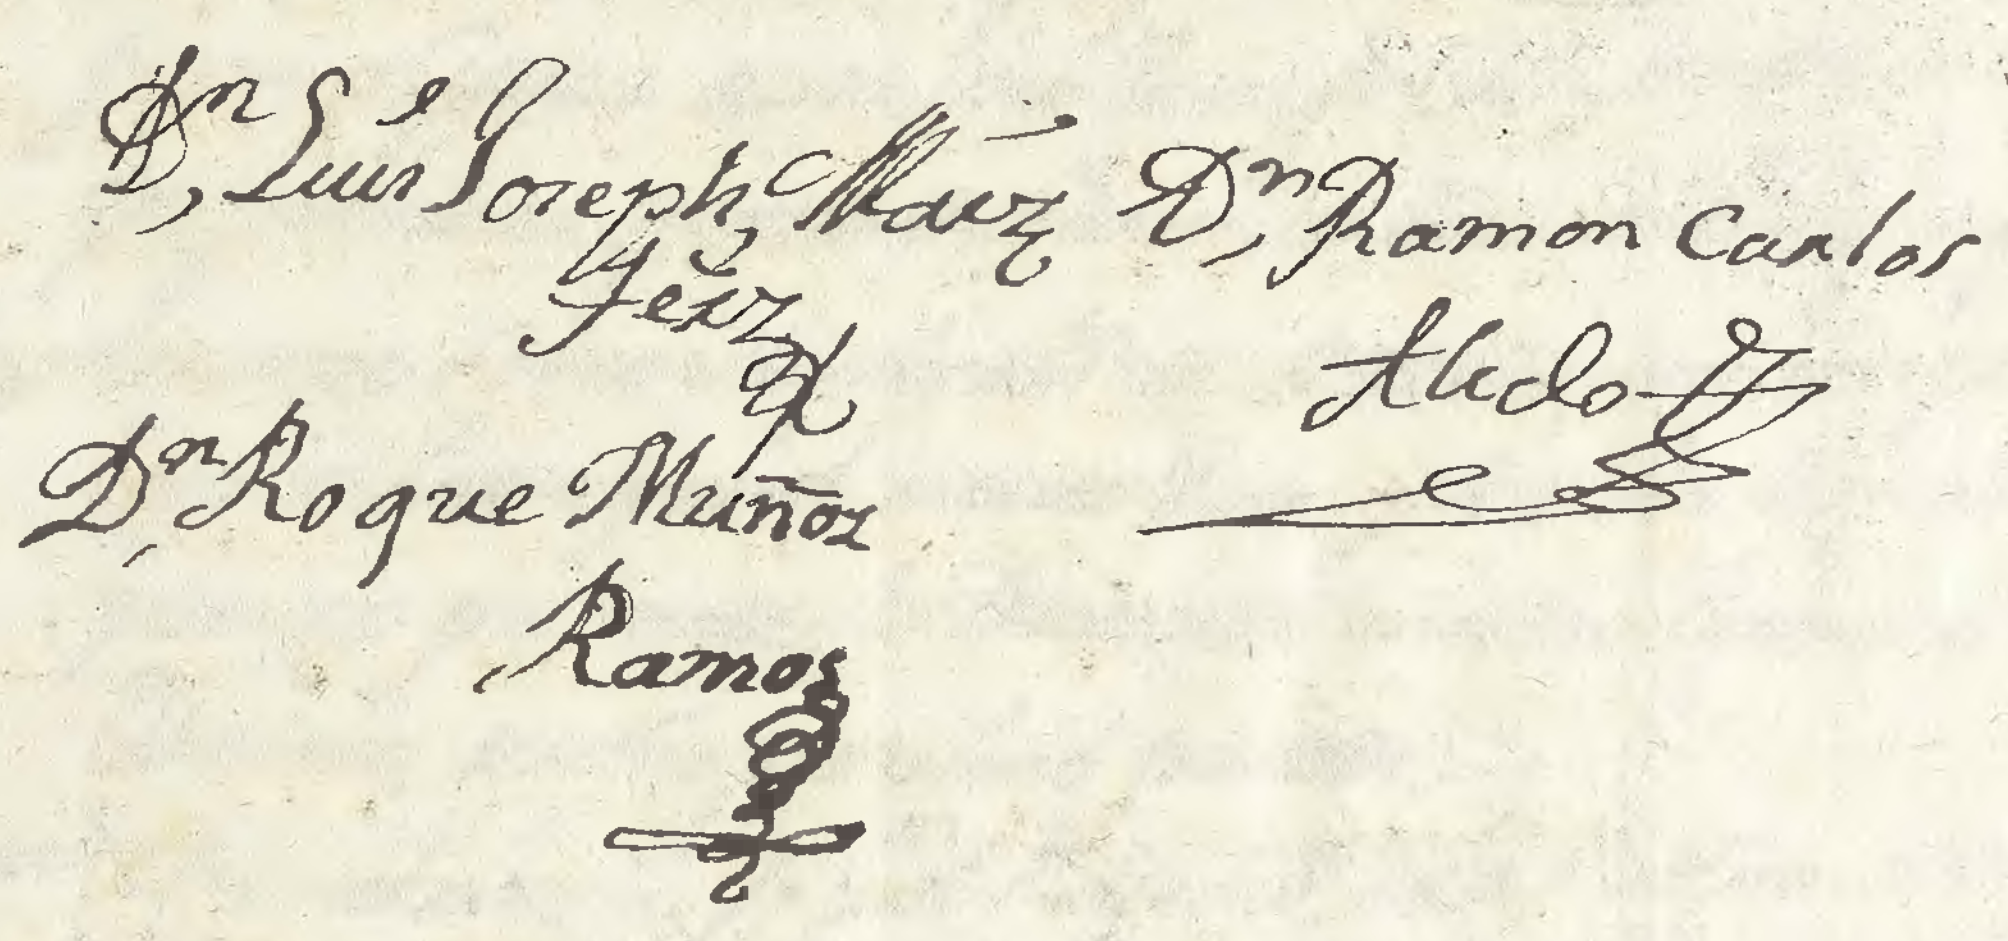 Dn, Luis Joseph,
Dn, Ramon Carlos
Aledo
Dn, Roque Muñoz
Ramos